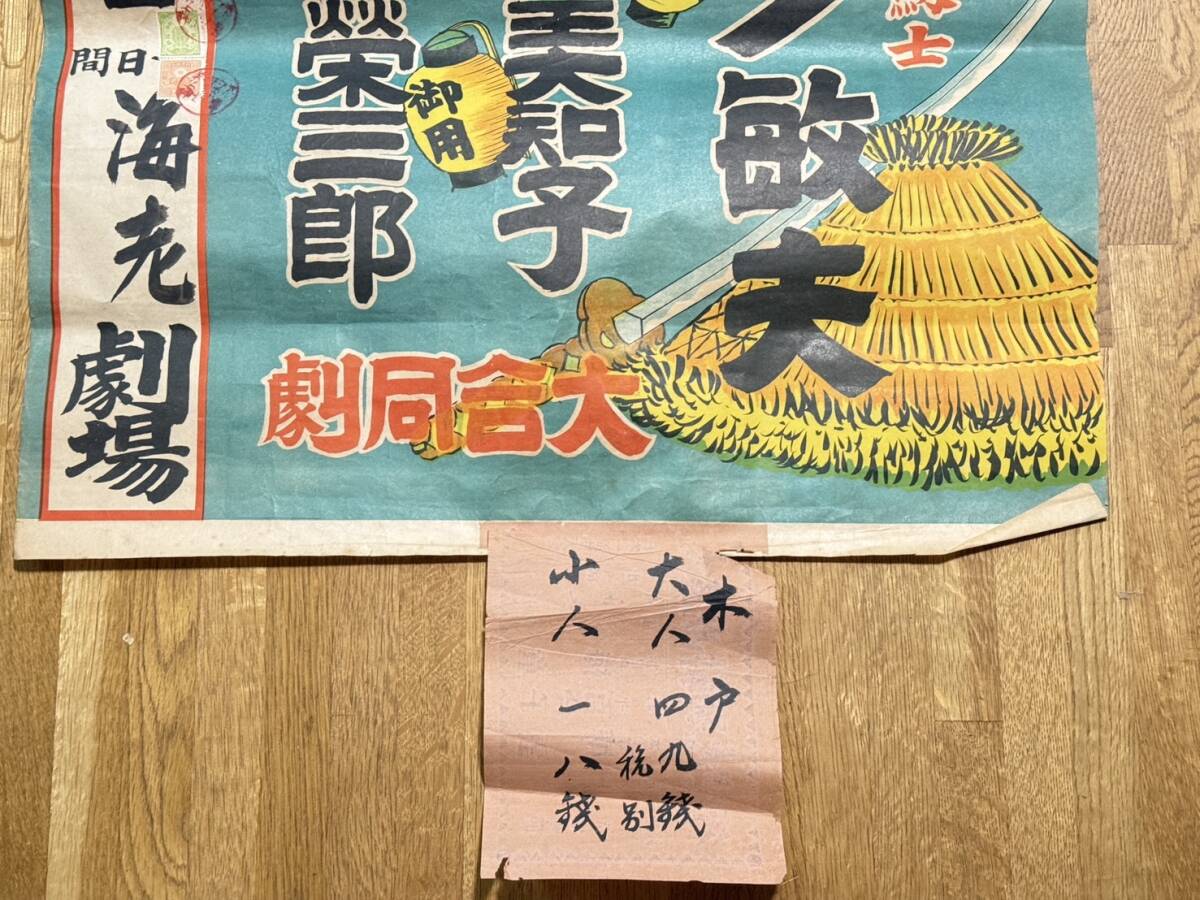 士
敏夫
美知子
御用
榮三郎
大合同劇
日間
海老劇場
木戸
大人四九錢
税別
小人一八錢